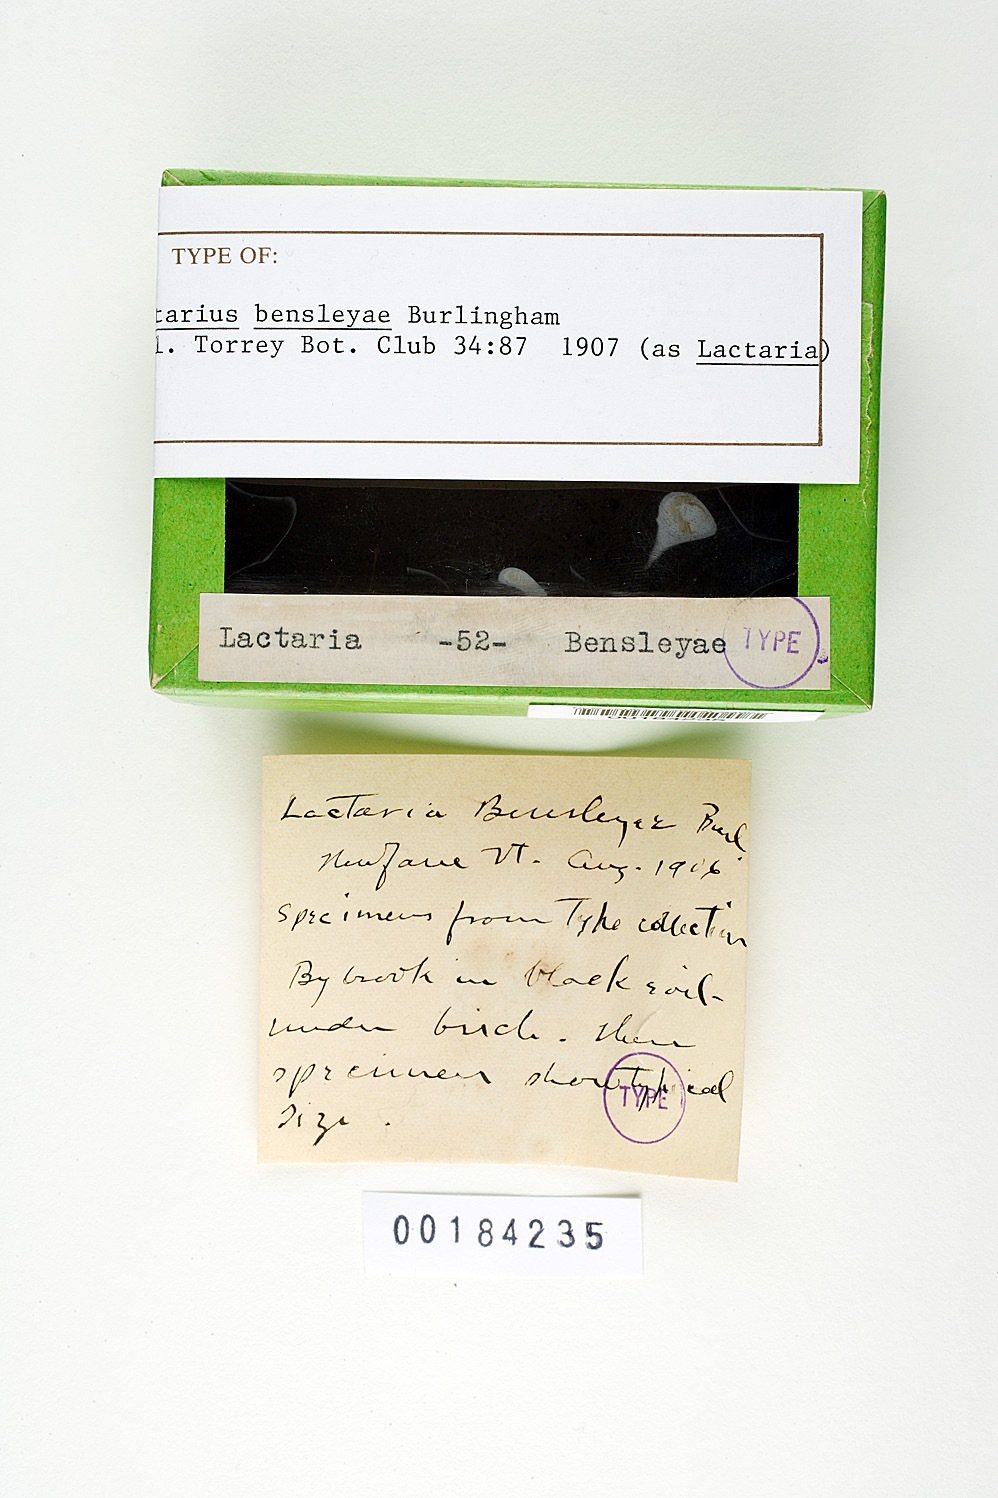 TYPE OF:
tarius bensleyae Burlingham
l. Torrey Bot. Club 34:87 1907 (as Lactaria)
Lactaria -52- Bensleyae TYPE
Lactaria Bensleyae Burl.
Newfane Vt. Aug. 1906
Specimens from Type collection
By brook in black soil
under birch. These
specimens show typical
size.
TYPE
00184235